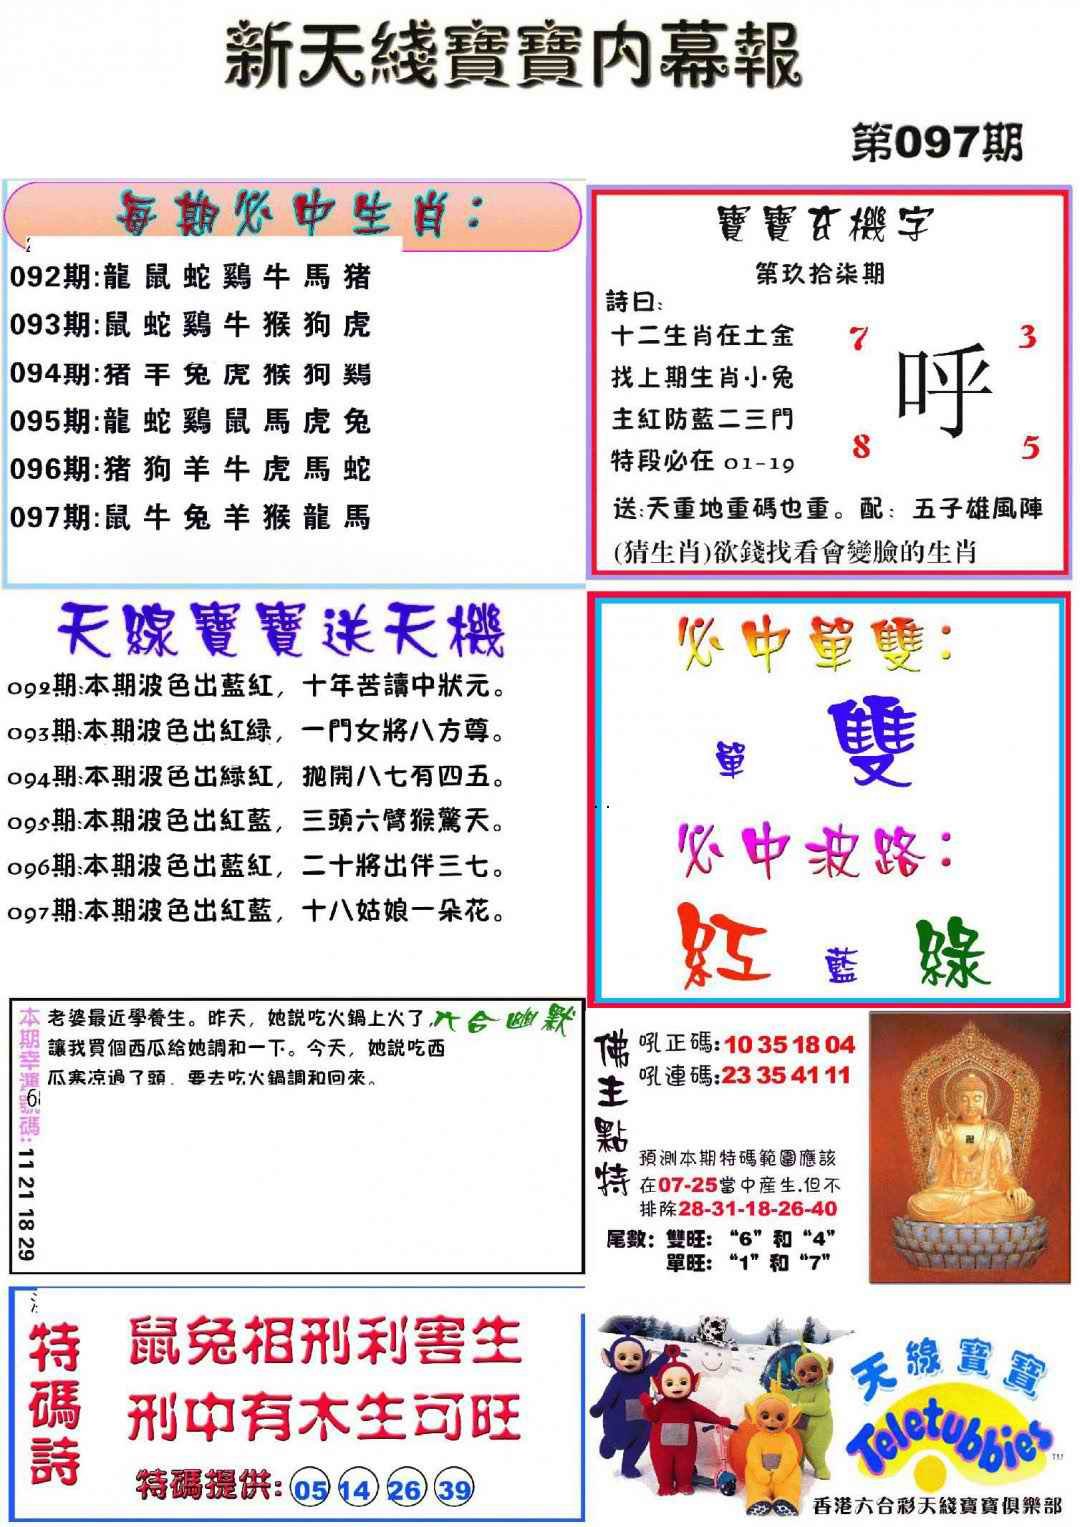 新天綫寶寶内幕報
第097期
每期必中生肖：
092期:龍 鼠 蛇 鷄 牛 馬 猪
093期:鼠 蛇 鷄 牛 猴 狗 虎
094期:猪 羊 兔 虎 猴 狗 鷄
095期:龍 蛇 鷄 鼠 馬 虎 兔
096期:猪 狗 羊 牛 虎 馬 蛇
097期:鼠 牛 兔 羊 猴 龍 馬
寶寶玄機字
第玖拾柒期
詩曰:
十二生肖在土金
找上期生肖小兔
主紅防藍二三門
特段必在 01-19
7
3
呼
8
5
送:天重地重碼也重。配：五子雄風陣
(猜生肖)欲錢找看會變臉的生肖
天線寶寶送天機
092期:本期波色出藍紅，十年苦讀中狀元。
093期:本期波色出紅緑，一門女將八方尊。
094期:本期波色出緑紅，抛開八七有四五。
095期:本期波色出紅藍，三頭六臂猴驚天。
096期:本期波色出藍紅，二十將出伴三七。
097期:本期波色出紅藍，十八姑娘一朵花。
必中單雙：
單 雙
必中波路：
紅 藍 綠
本期幸運號碼: 11 21 18 29
六合幽默
老婆最近學養生。昨天，她說吃火鍋上火了，
讓我買個西瓜給她調和一下。今天，她說吃西
瓜寒凉過了頭，要去吃火鍋調和回來。
佛主點特
吼正碼:10 35 18 04
吼連碼:23 35 41 11
預測本期特碼範圍應該
在07-25當中産生.但不
排除28-31-18-26-40
尾數：雙旺：“6”和“4”
單旺：“1”和“7”
特碼詩
鼠兔相刑利害生
刑中有木生可旺
特碼提供: 05 14 26 39
天線寶寶
Teletubbies
TM
香港六合彩天綫寶寶俱樂部